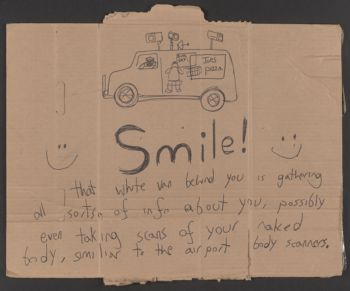 Joe's
pizza
Smile!
that white van behind you is gathering
all sorts of info about you, possibly
even taking scans of your naked
body, similar to the airport body scanners.